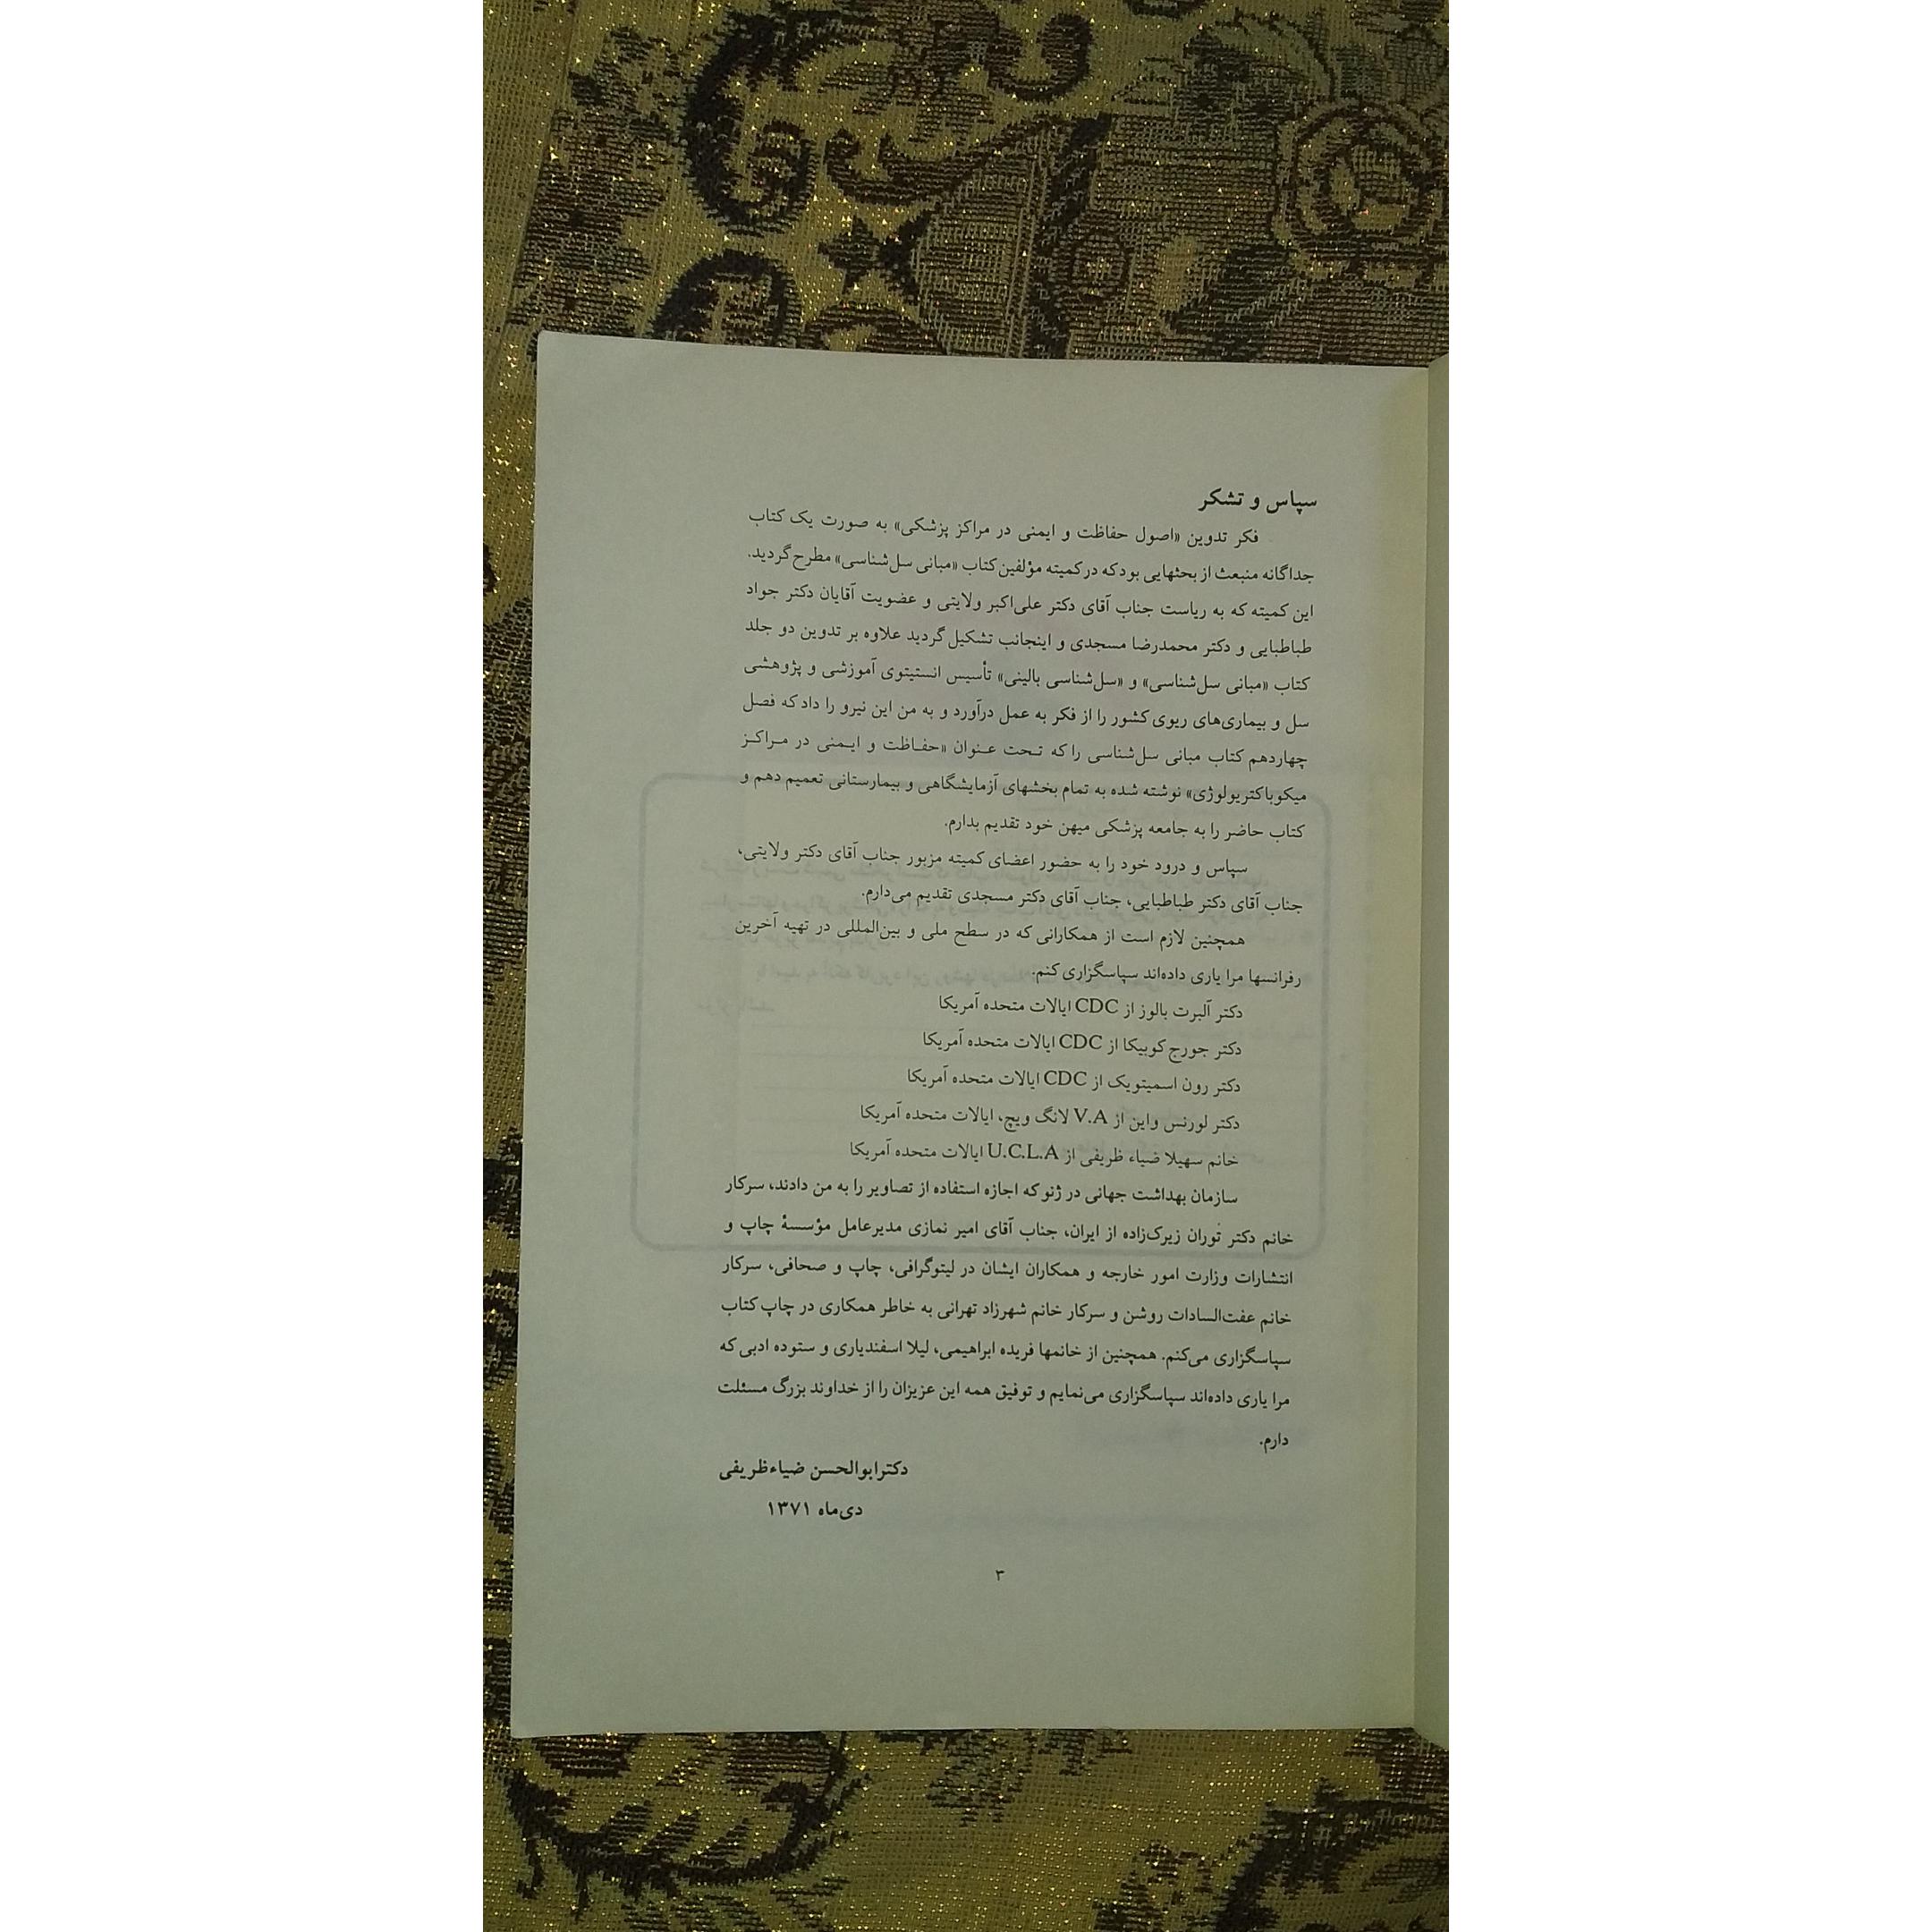 سپاس و تشکر
فکر تدوین «اصول حفاظت و ایمنی در مراکز پزشکی» به صورت یک کتاب
جداگانه منبعث از بحثهایی بود که در کمیته مؤلفین کتاب «مبانی سل‌شناسی» مطرح گردید.
این کمیته که به ریاست جناب آقای دکتر علی‌اکبر ولایتی و عضویت آقایان دکتر جواد
طباطبایی و دکتر محمدرضا مسجدی و اینجانب تشکیل گردید علاوه بر تدوین دو جلد
کتاب «مبانی سل‌شناسی» و «سل‌شناسی بالینی» تأسیس انستیتوی آموزشی و پژوهشی
سل و بیماری‌های ریوی کشور را از فکر به عمل درآورد و به من این نیرو را داد که فصل
چهاردهم کتاب مبانی سل‌شناسی را که تحت عنوان «حفاظت و ایمنی در مراکز
میکوباکتریولوژی» نوشته شده به تمام بخشهای آزمایشگاهی و بیمارستانی تعمیم دهم و
کتاب حاضر را به جامعه پزشکی میهن خود تقدیم بدارم.
سپاس و درود خود را به حضور اعضای کمیته مزبور جناب آقای دکتر ولایتی،
جناب آقای دکتر طباطبایی، جناب آقای دکتر مسجدی تقدیم می‌دارم.
همچنین لازم است از همکارانی که در سطح ملی و بین‌المللی در تهیه آخرین
رفرانسها مرا یاری داده‌اند سپاسگزاری کنم.
دکتر آلبرت بالوز از CDC ایالات متحده آمریکا
دکتر جورج کوبیکا از CDC ایالات متحده آمریکا
دکتر رون اسمیتویک از CDC ایالات متحده آمریکا
دکتر لورنس واین از V.A لانگ ویچ، ایالات متحده آمریکا
خانم سهیلا ضیاء ظریفی از U.C.L.A ایالات متحده آمریکا
سازمان بهداشت جهانی در ژنو که اجازه استفاده از تصاویر را به من دادند، سرکار
خانم دکتر توران زیرک‌زاده از ایران، جناب آقای امیر نمازی مدیرعامل مؤسسهٔ چاپ و
انتشارات وزارت امور خارجه و همکاران ایشان در لیتوگرافی، چاپ و صحافی، سرکار
خانم عفت‌السادات روشن و سرکار خانم شهرزاد تهرانی به خاطر همکاری در چاپ کتاب
سپاسگزاری می‌کنم. همچنین از خانمها فریده ابراهیمی، لیلا اسفندیاری و ستوده ادبی که
مرا یاری داده‌اند سپاسگزاری می‌نمایم و توفیق همه این عزیزان را از خداوند بزرگ مسئلت
دارم.
دکتر ابوالحسن ضیاءظریفی
دی‌ماه ۱۳۷۱
۳